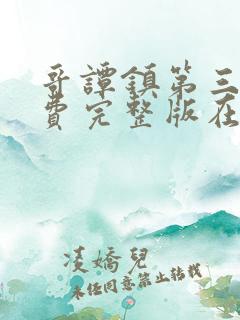 哥譚鎮第三
費完整版在
凌嬌兒
未經同意禁止轉載